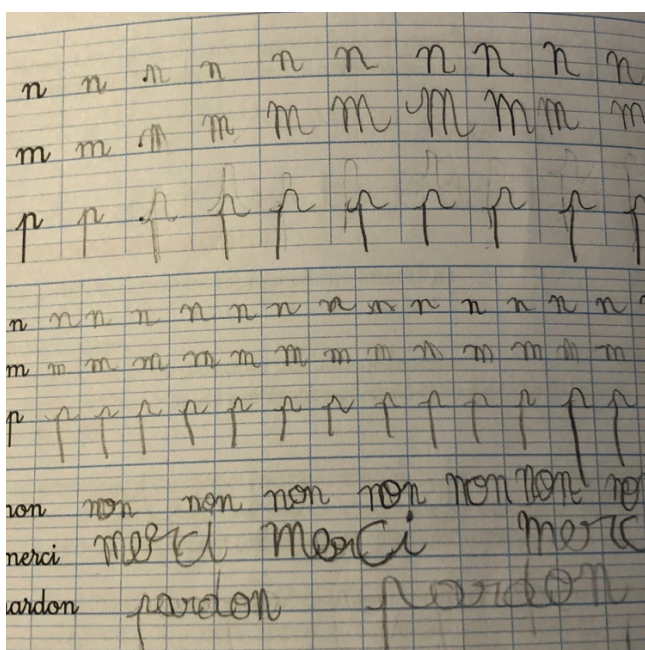 n n n n n n n n n n
m m m m m m m m m m
p p p p p p p p p p
n n n n n n n n n n n n n n
m m m m m m m m m m m m m m
p p p p p p p p p p p p p p
non non non non non non non no
merci merci merci merc
ardon pardon pardon